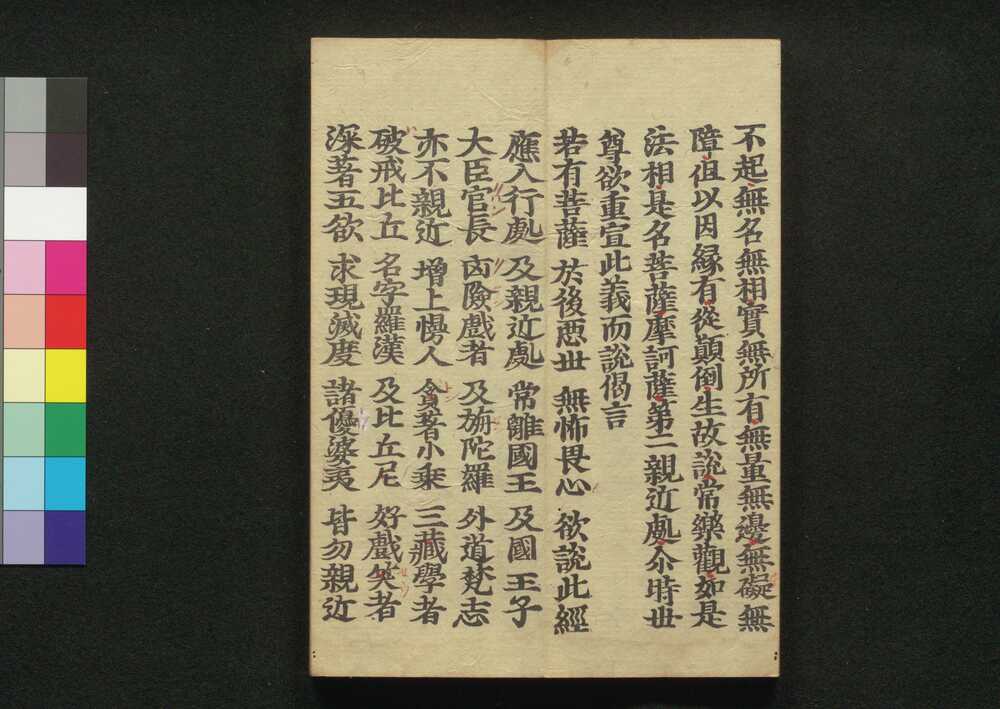 不起無名無相實無所有無量無邊無礙無
障但以因縁有從顛倒生故説常樂觀如是
法相是名菩薩摩訶薩第二親近處尒時世
尊欲重宣此義而説偈言
若有菩薩 於後惡世 無怖畏心 欲説此經
應入行處 及親近處 常離國王 及國王子
大臣官長 凶險戲者 及旃陀羅 外道梵志
亦不親近 増上慢人 貪著小乘 三藏學者
破戒比丘 名字羅漢 及比丘尼 好戲笑者
深著五欲 求現滅度 諸優婆夷 皆勿親近